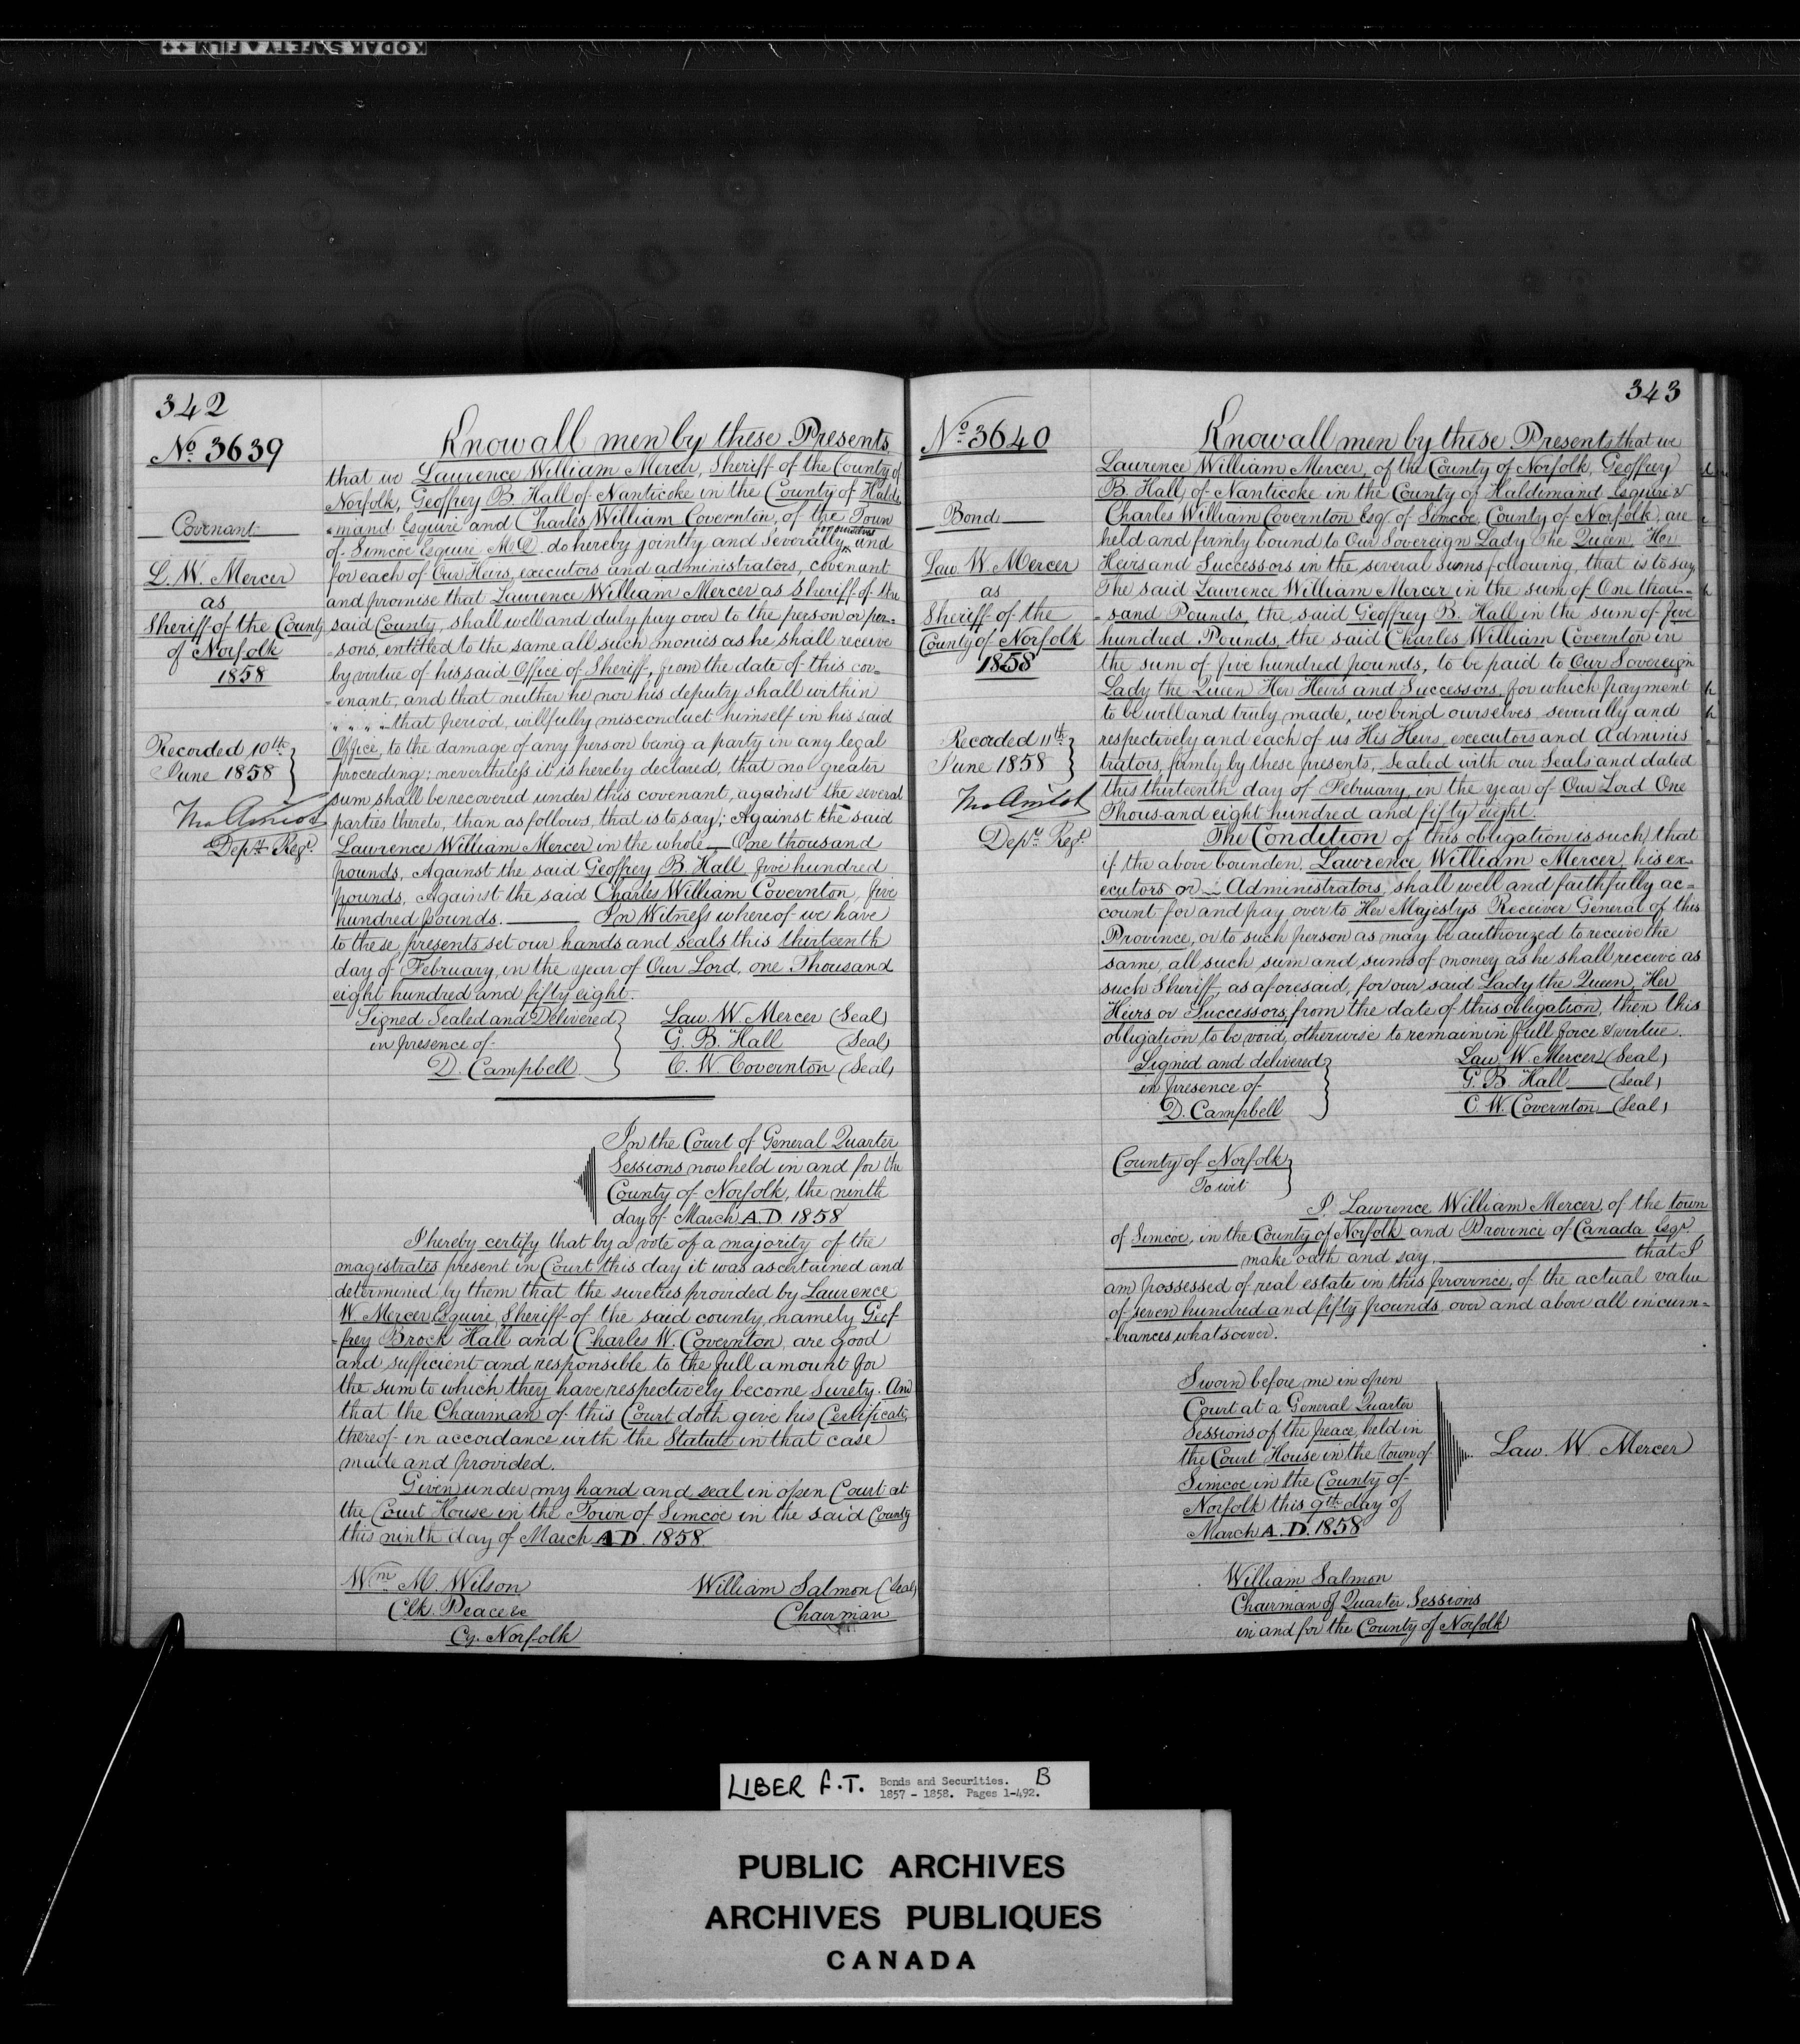 KODAK SAFETY ▲ FILM ++
342
No. 3639
Covenant
L. W. Mercer
as
Sheriff of the County
of Norfolk
1858
Recorded 10th
June 1858
Depy. Regr.
Know all men by these Presents
that we Laurence William Mercer, Sheriff of the County of
Norfolk, Geoffrey B. Hall of Nanticoke in the County of Haldi
=mand Esquire and Charles William Covernton, of the Town
of Simcoe Esquire M.D. do hereby jointly and severally for ourselves and
for each of Our Heirs, executors and administrators, covenant
and promise that Lawrence William Mercer as Sheriff of the
said County, shall well and duly pay over to the person or per=
=sons, entitled to the same all such monies as he shall receive
by virtue of his said Office of Sheriff, from the date of this cov=
=enant, and that neither he nor his deputy shall within
" " " " that period, willfully misconduct himself in his said
Office, to the damage of any person being a party in any legal
proceeding; nevertheless it is hereby declared, that no greater
sum shall be recovered under this covenant, against the several
parties thereto, than as follows, that is to say; Against the said
Lawrence William Mercer in the whole — One thousand
pounds, Against the said Geoffrey B. Hall, five hundred
pounds, Against the said Charles William Covernton, five
hundred pounds. — In Witness whereof we have
to these presents set our hands and seals this thirteenth
day of February, in the year of Our Lord, one Thousand
eight hundred and fifty eight.
Signed Sealed and Delivered Law. W. Mercer (Seal)
in presence of G. B. Hall (Seal)
D. Campbell C. W. Covernton (Seal)
In the Court of General Quarter
Sessions now held in and for the
County of Norfolk, the ninth
day of March A.D. 1858
I hereby certify that by a vote of a majority of the
magistrates present in Court this day it was ascertained and
determined by them that the sureties provided by Laurence
W Mercer Esquire, Sheriff of the said county, namely Geof
=frey Brock Hall and Charles W. Covernton, are good
and sufficient and responsible to the full amount for
the sum to which they have respectively become surety. And
that the Chairman of this Court doth give his Certificate
thereof in accordance with the Statute in that case
made and provided.
Given under my hand and seal in open Court at
the Court House in the Town of Simcoe in the said County
this ninth day of March A.D. 1858.
Wm M. Wilson William Salmon (Seal)
Clk. Peace &c Chairman
Cy. Norfolk
343
No. 3640
Bond
Law. W. Mercer
as
Sheriff of the
County of Norfolk
1858
Recorded 11th
June 1858
Depy. Regr.
Know all men by these Presents that we
Lawrence William Mercer, of the County of Norfolk, Geoffrey
B. Hall of Nanticoke in the County of Haldimand Esquire &
Charles William Covernton Esqr. of Simcoe, County of Norfolk, are
held and firmly bound to Our Sovereign Lady the Queen, Her
Heirs and Successors in the several sums following, that is to say
The said Lawrence William Mercer in the sum of One thou=
=sand Pounds, the said Geoffrey B. Hall in the sum of five
hundred Pounds, the said Charles William Covernton in
the sum of five hundred pounds, to be paid to Our Sovereign
Lady the Queen Her Heirs and Successors, for which payment
to be well and truly made, we bind ourselves severally and
respectively and each of us His Heirs, executors and Adminis
trators, firmly by these presents, Sealed with our Seals and dated
this thirteenth day of February, in the year of Our Lord One
Thousand eight hundred and fifty eight.
The Condition of this obligation is such, that
if the above bounden, Lawrence William Mercer, his ex=
ecutors or Administrators, shall well and faithfully ac=
count for and pay over to Her Majestys Receiver General of this
Province, or to such person as may be authorized to receive the
same, all such sum and sums of money as he shall receive as
such Sheriff, as aforesaid, for our said Lady the Queen, Her
Heirs or Successors, from the date of this obligation, then this
obligation to be void, otherwise to remain in full force & virtue.
Signed and delivered Law. W. Mercer (Seal)
in presence of G. B. Hall (Seal)
D. Campbell C. W. Covernton (Seal)
County of Norfolk
To wit
I, Lawrence William Mercer, of the town
of Simcoe, in the County of Norfolk and Province of Canada Esqr.
make oath and say that I
am possessed of real estate in this province, of the actual value
of seven hundred and fifty pounds, over and above all incum=
=brances whatsoever.
Sworn before me in open
Court at a General Quarter
Sessions of the peace, held in
the Court House in the town of
Simcoe in the County of
Norfolk this 9th day of
March A.D. 1858
Law. W. Mercer
William Salmon
Chairman of Quarter Sessions
in and for the County of Norfolk
LIBER F.T. Bonds and Securities. B
1857 - 1858. Pages 1-492.
PUBLIC ARCHIVES
ARCHIVES PUBLIQUES
CANADA